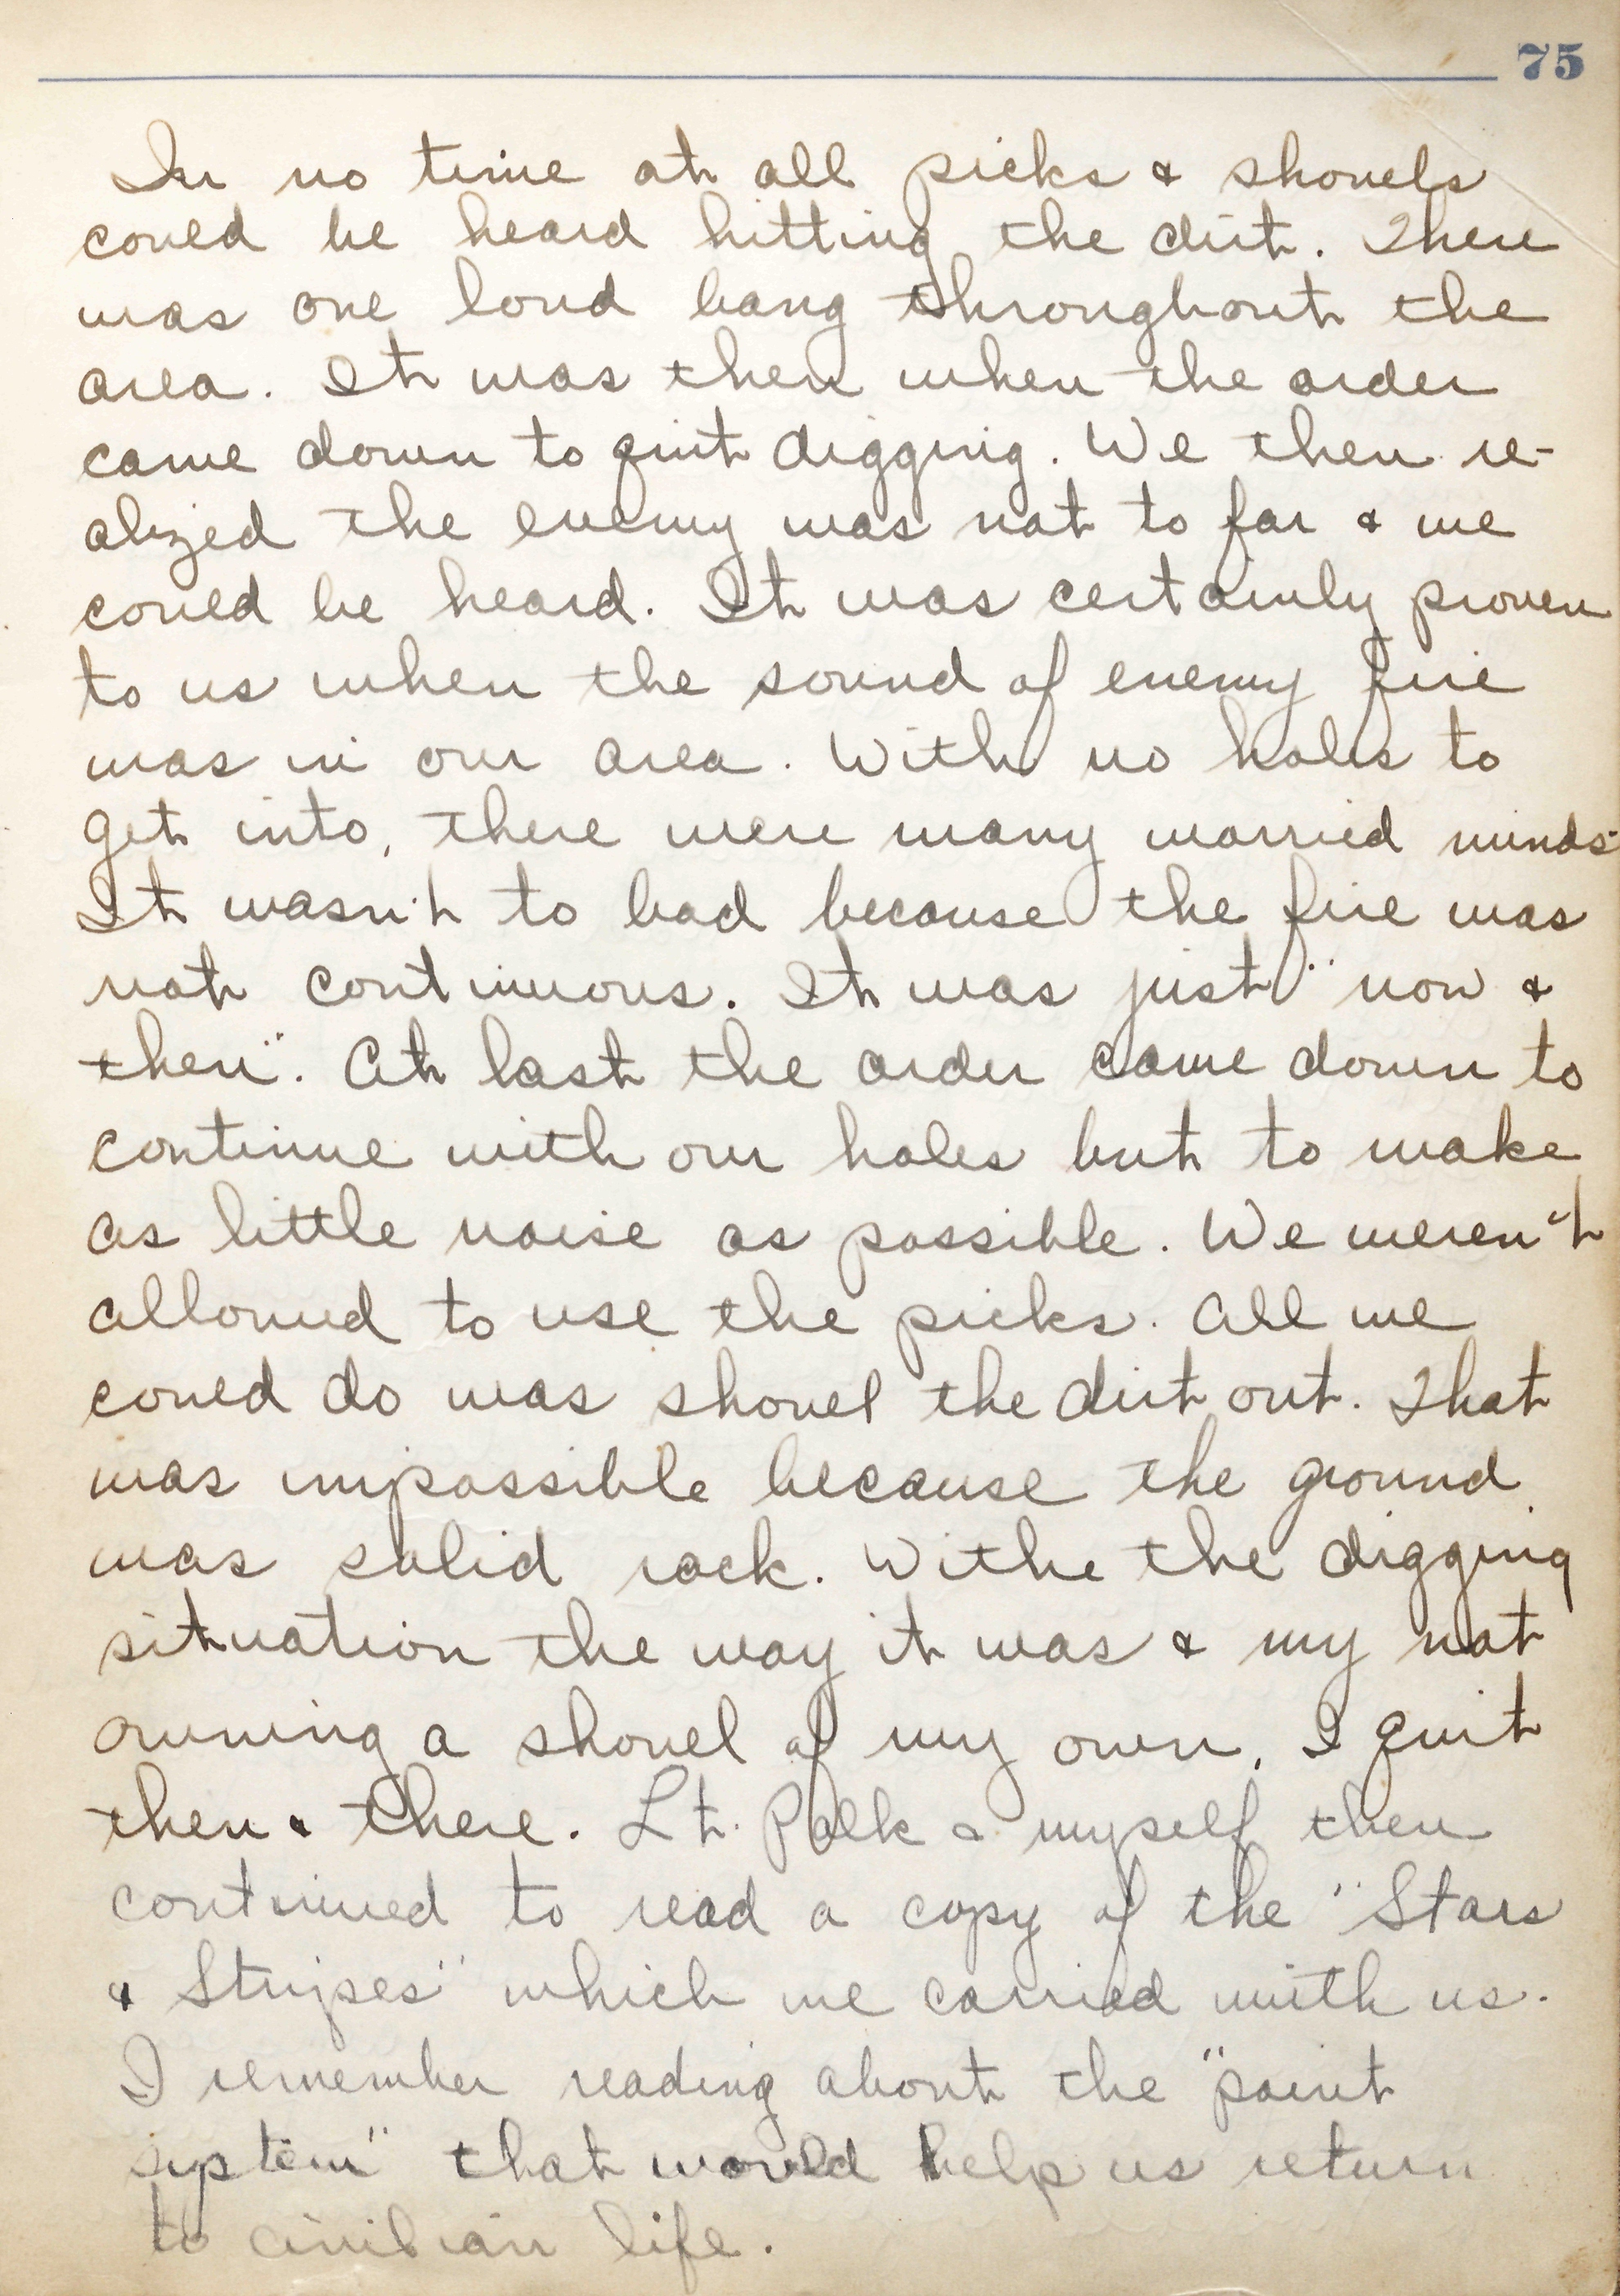 75
In no time at all picks & shovels
could be heard hitting the dirt. There
was one loud bang throughout the
area. It was then when the order
came down to quit digging. We then re-
alized the enemy was not to far & we
could be heard. It was certainly proven
to us when the sound of enemy fire
was in our area. With no holes to
get into, there were many worried minds.
It wasn't to bad because the fire was
not continuous. It was just "now &
then". At last the order came down to
continue with our holes but to make
as little noise as possible. We weren't
allowed to use the picks. All we
could do was shovel the dirt out. That
was impossible because the ground
was solid rock. Withe the digging
situation the way it was & my not
owning a shovel of my own, I quit
then & there. Lt. Polk & myself then
continued to read a copy of the "Stars
& Stripes" which we carried with us.
I remember reading about the "point
system" that would help us return
to civilian life.